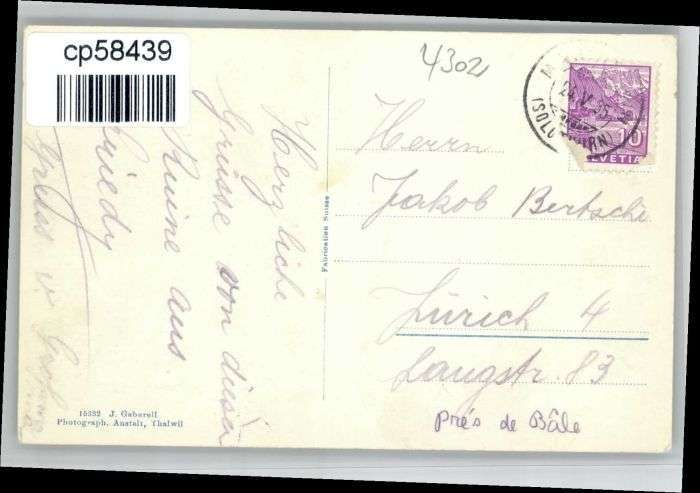 cp58439
4302
Herzliche
Grüsse von dieser
Ruine aus.
Friedy
Gruss v.
Fabrication Suisse
15332 J. Gaberell
Photograph. Anstalt, Thalwil
(SOLOTHURN)
10
HELVETIA
Herrn
Jakob Bertschi
Zürich 4
Langstr. 83
Près de Bâle